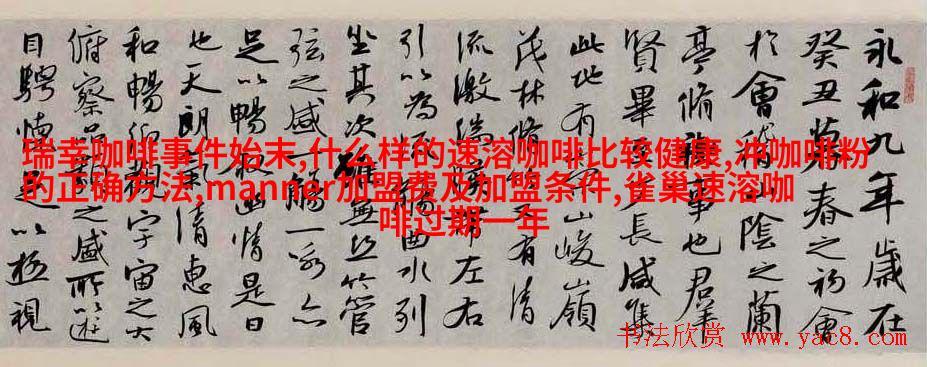 永和九年歲在
癸丑暮春之初會
於會稽山陰之蘭
亭脩禊事也群
賢畢至少長咸集
此地有崇山峻嶺
茂林脩竹又有清
流激湍暎帶左右
引以為流觴曲水列
坐其次雖無絲竹管
弦之盛一觴一詠亦
足以暢敘幽情是日
也天朗氣清惠風
和暢仰觀宇宙之大
俯察品類之盛所以遊
目騁懷足以極視
瑞幸咖啡事件始末,什么样的速溶咖啡比较健康,冲咖啡粉
的正确方法,manner加盟费及加盟条件,雀巢速溶咖
啡过期一年
书法欣赏 www.yac8.com